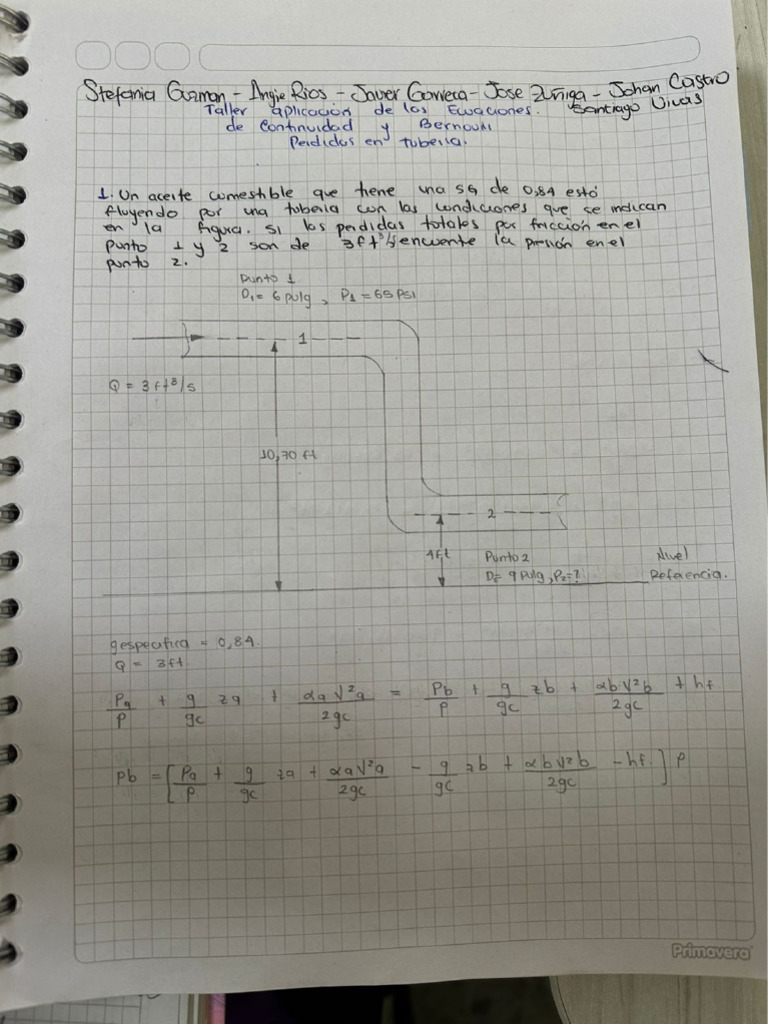 Stefania Guzman - Angie Rios - Javier Gonveca - Jose Zuñiga - Johan Castro
Santiago Vivas
Taller aplicación de las Ecuaciones.
de Continuidad y Bernoulli
Perdidas en tuberia.
1. Un aceite comestible que tiene una SG de 0,84 está
fluyendo por una tuberia con las condiciones que se indican
en la figura. Si las perdidas totales por fricción en el
punto 1 y 2 son de 3ft³/s encuentre la presión en el
punto 2.
Punto 1
D₁= 6 pulg, P₁ = 65 PSI
1
Q = 3 ft³/s
10,70 ft
2
4ft
Punto 2
D= 9 Pulg, P₂=?
Nivel
Referencia.
gespecifica = 0,84.
Q = 3ft
Pa/ρ + g/gc za + αa V²a/2gc = Pb/ρ + g/gc zb + αb V²b/2gc + hf
Pb = [Pa/ρ + g/gc za + αa V²a/2gc - g/gc zb + αb V²b/2gc - hf.] ρ
Primavera